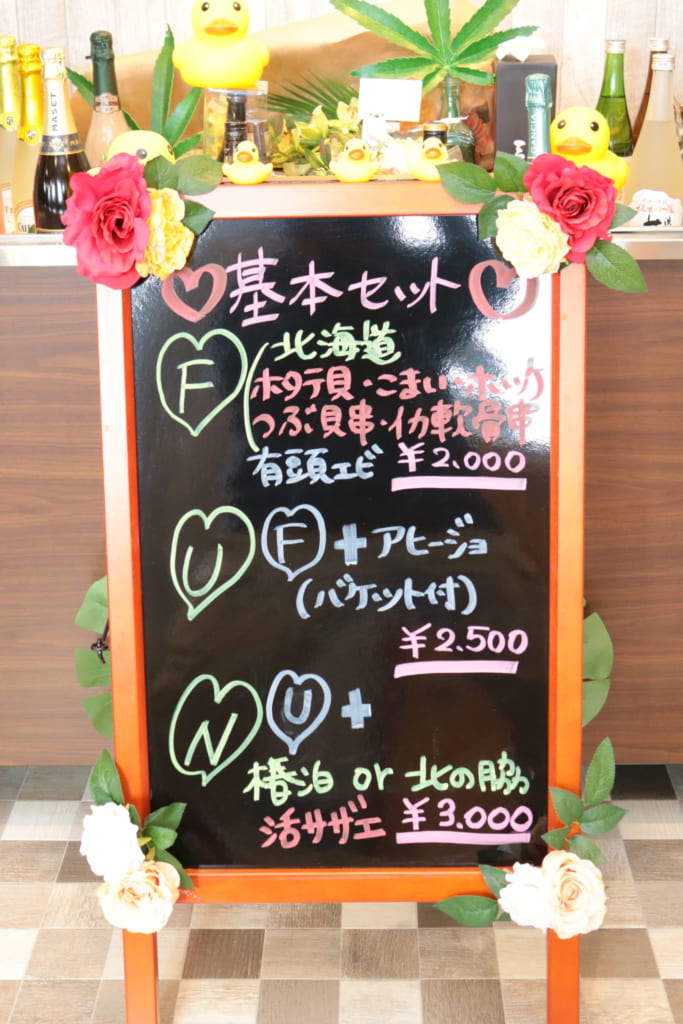 基本セット
F
北海道
ホタテ貝・こまい・ホッケ
つぶ貝串・イカ軟骨串
有頭エビ ¥2,000
U F + アヒージョ
(バケット付)
¥2,500
N U +
椿泊 or 北の脇
活サザエ ¥3,000
MASET